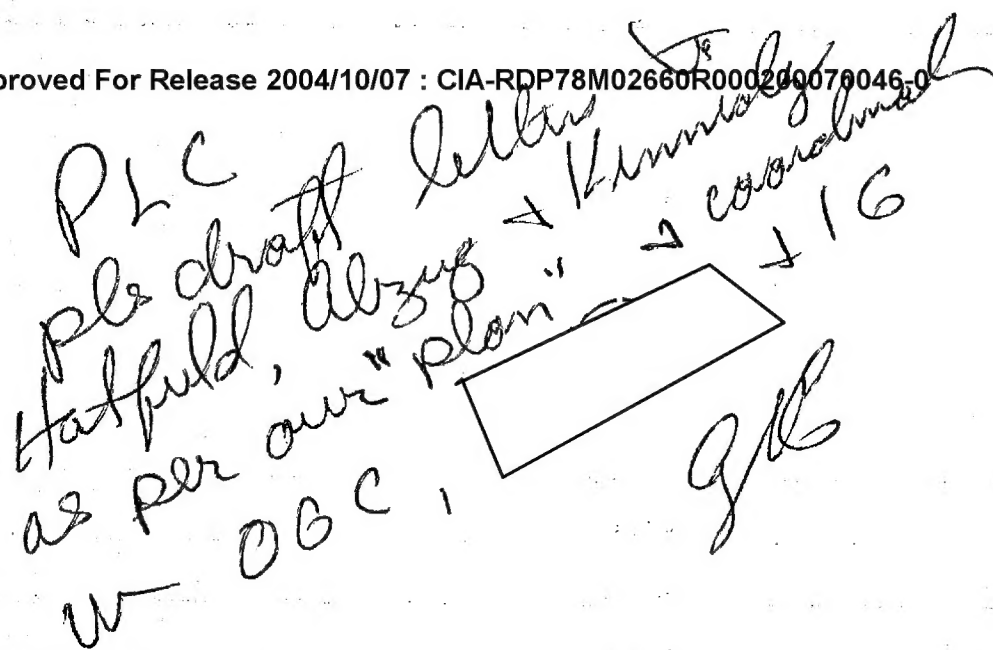 proved For Release 2004/10/07 : CIA-RDP78M02660R000200070046-0
PLC
pls draft letters to
Hatfield, Abzug & Kennedy
as per our "plan" & coordinate
w OGC, & IG